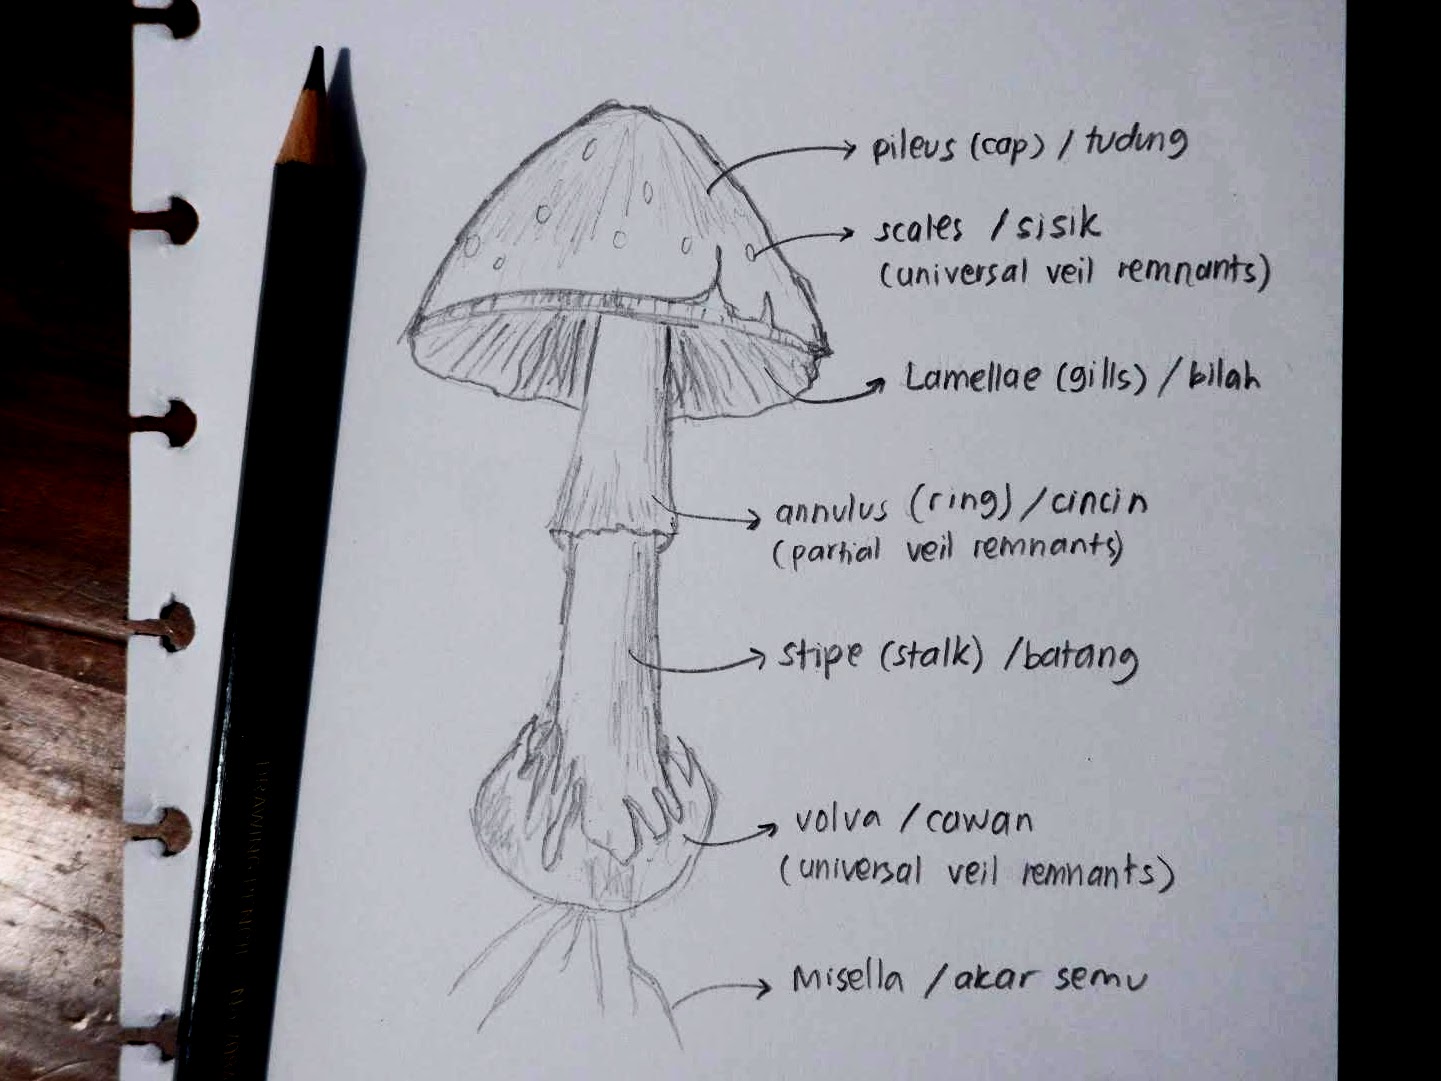 pileus (cap) / tudung
scales / sisik
(universal veil remnants)
Lamellae (gills) / bilah
annulus (ring) / cincin
(partial veil remnants)
stipe (stalk) / batang
volva / cawan
(universal veil remnants)
Misella / akar semu
DRAWING PENCIL